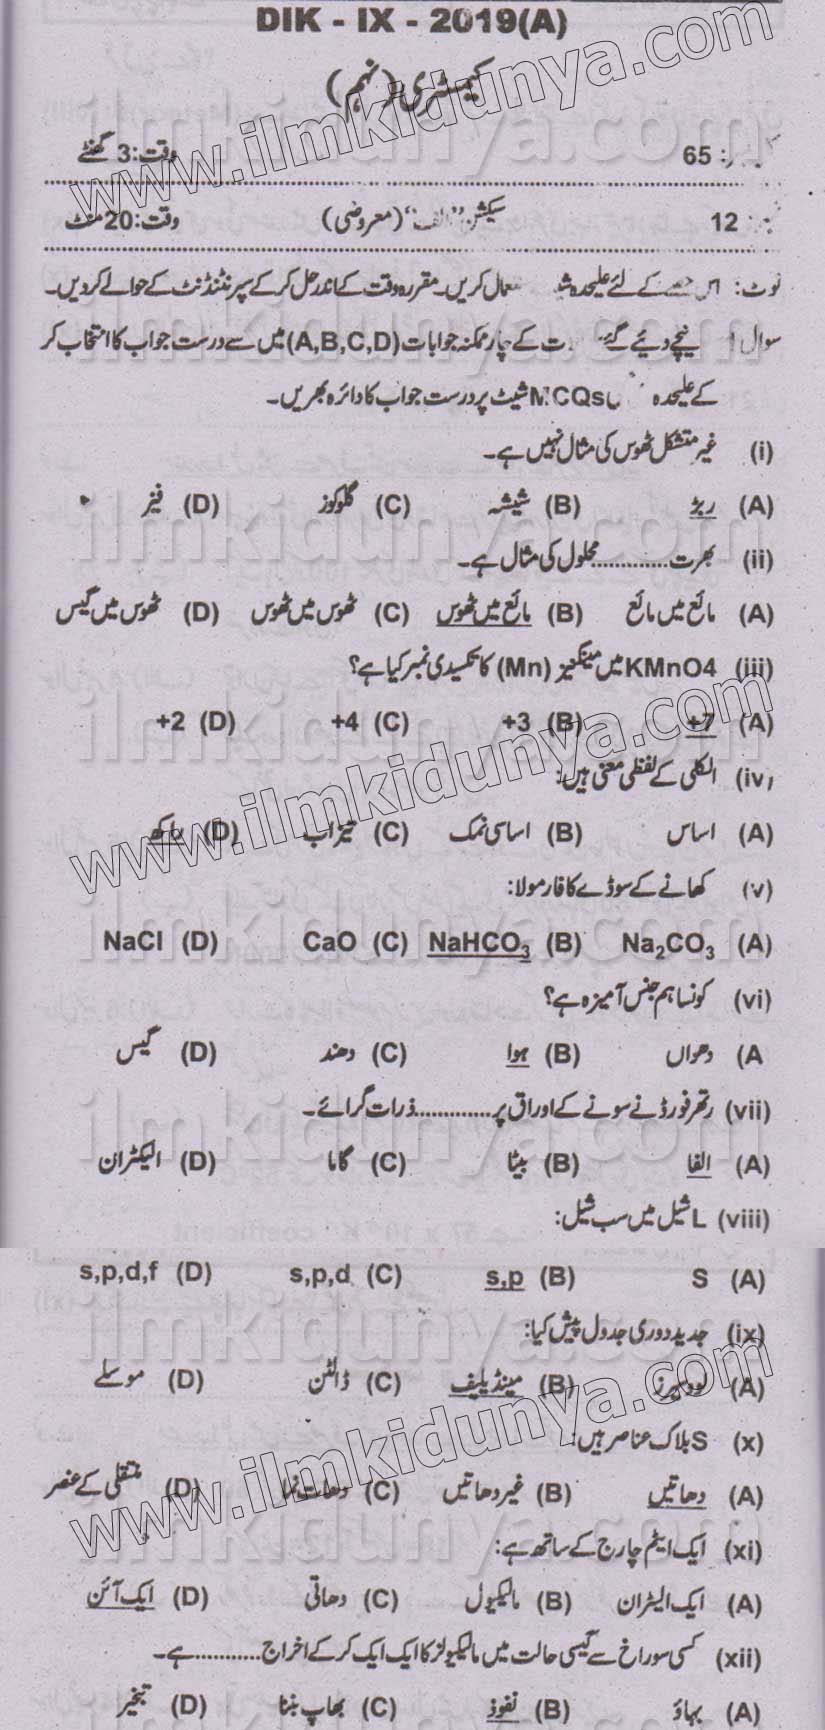 DIK - IX - 2019(A)
کیمسٹری (نہم)
65 وقت:3 گھنٹے
12 سیکشن "الف" (معروضی) وقت:20منٹ
نوٹ: اس حصے کے لئے علیحدہ استعمال کریں۔ مقررہ وقت کے اندر حل کر کے سپرنٹنڈنٹ کے حوالے کردیں۔
سوال نیچے دیئے گئے کے چار ممکنہ جوابات (A,B,C,D) میں سے درست جواب کا انتخاب کر
کے علیحدہ MCQs شیٹ پر درست جواب کا دائرہ بھریں۔
(i) غیر متشکل ٹھوس کی مثال نہیں ہے۔
(A) ربڑ (B) شیشہ (C) گلوکوز (D)
(ii) بھرت ............ محلول کی مثال ہے۔
(A) مائع میں مائع (B) مائع میں ٹھوس (C) ٹھوس میں ٹھوس (D) ٹھوس میں گیس
(iii) KMnO4 میں مینگنیز (Mn) کا تکسیدی نمبر کیا ہے؟
(A) +7 (B) +3 (C) +4 (D) +2
(iv) الکلی کے لفظی معنی ہیں:
(A) اساس (B) اساسی نمک (C) تیزاب (D) راکھ
(v) کھانے کے سوڈے کا فارمولا:
(A) Na₂CO₃ (B) NaHCO₃ (C) CaO (D) NaCl
(vi) کونسا ہم جنس آمیزہ ہے؟
A) دھواں (B) ہوا (C) دھند (D) گیس
(vii) رتھرفورڈ نے سونے کے اوراق پر ............. ذرات گرائے۔
(A) الفا (B) بیٹا (C) گاما (D) الیکٹران
(viii) L شیل میں سب شیل:
(A) S (B) s,p (C) s,p,d (D) s,p,d,f
(ix) جدید دوری جدول پیش کیا:
(A) (B) مینڈیلیف (C) ڈالٹن (D) موسلے
(x) S بلاک عناصر ہیں:
(A) دھاتیں (B) غیر دھاتیں (C) دھات نما (D) منتقلی کے عنصر
(xi) ایک ایٹم چارج کے ساتھ ہے:
(A) ایک الیٹران (B) مالیکیول (C) دھاتی (D) ایک آئن
(xii) کسی سوراخ سے گیسی حالت میں مالیکیولز کا ایک ایک کر کے اخراج ........... ہے۔
(A) بہاؤ (B) نفوذ (C) بھاپ بننا (D) تبخیر
www.ilmkidunya.com
ilmkidunya.com
ilmkidunya.com
www.ilmkidunya.com
ilmkidunya.com
ilmkidunya.com
ilmkidunya.com
www.ilmkidunya.com
ilmkidunya.com